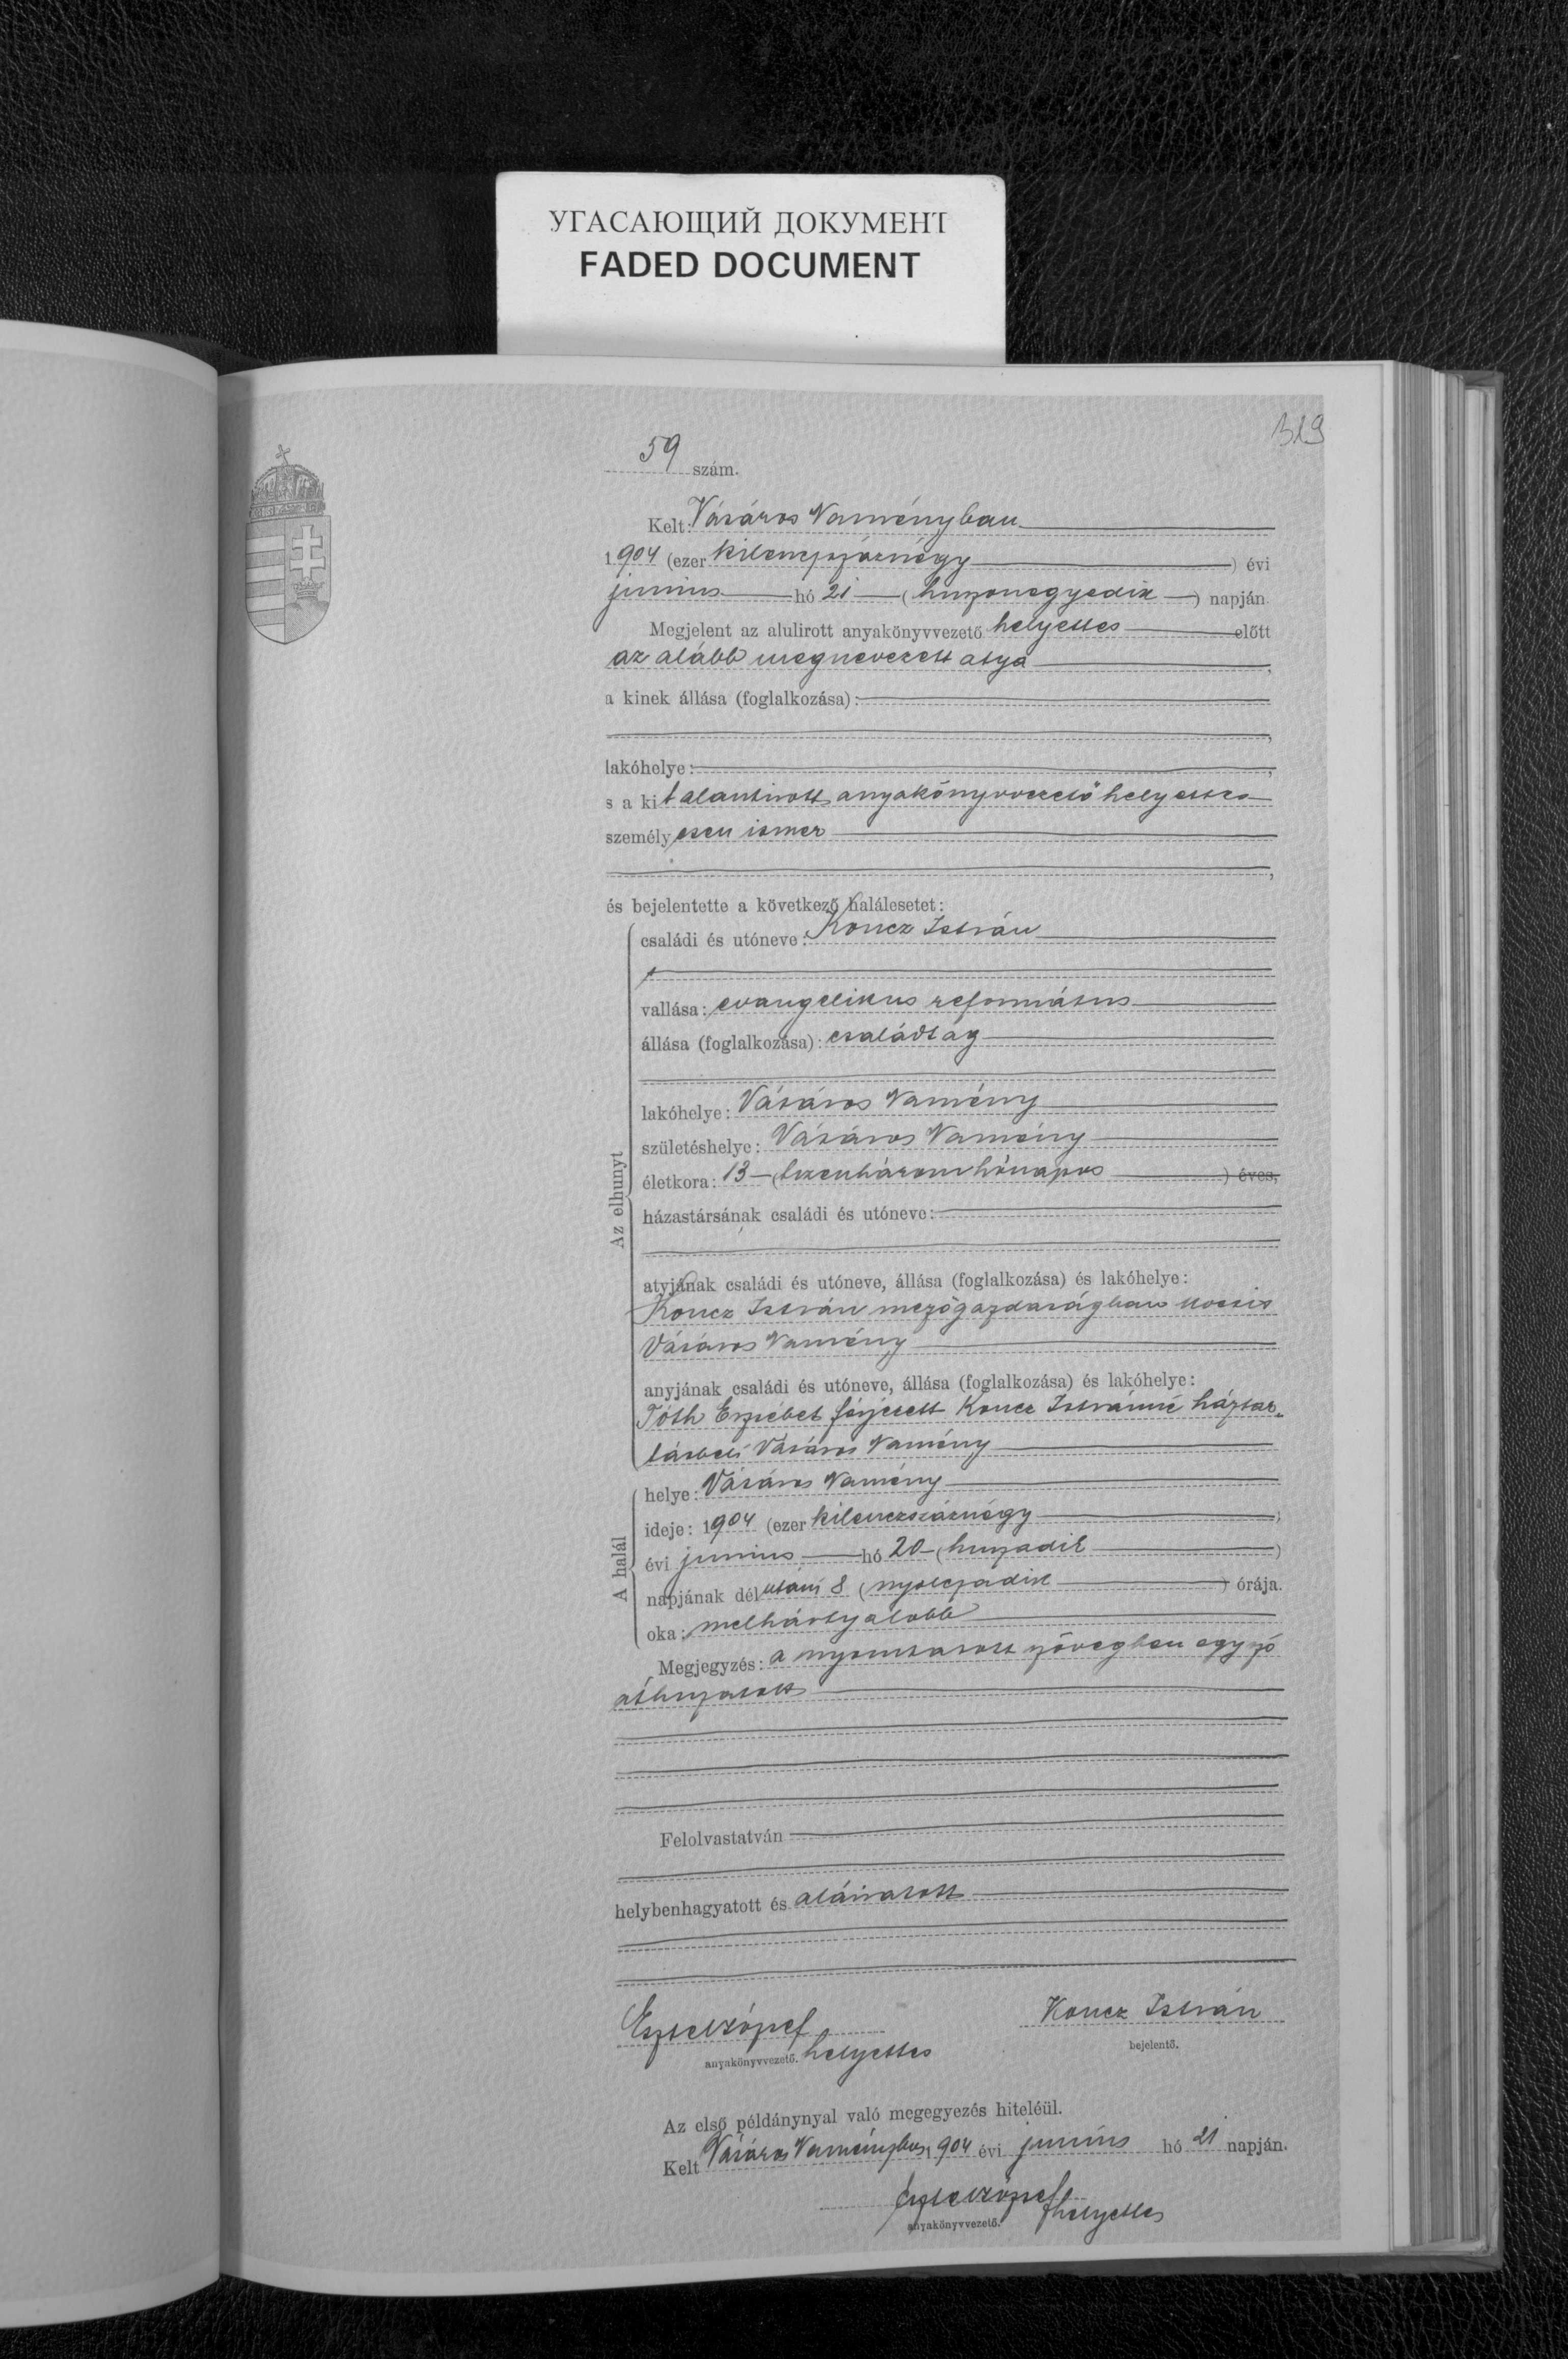 УГАСАЮЩИЙ ДОКУМЕНТ
FADED DOCUMENT
319
59 szám.
Kelt: Vásáros Naményban
1904 (ezer kilenczszáznégy) évi
junius hó 21 (huszonegyedik) napján.
Megjelent az alulirott anyakönyvvezető helyettes előtt
az alább megnevezett atya,
a kinek állása (foglalkozása):
lakóhelye:
s a kit alantirott anyakönyvvezető helyettes
személyesen ismer
és bejelentette a következő halálesetet:
Az elhunyt
családi és utóneve: Koncz István
vallása: evangelikus református
állása (foglalkozása): családtag
lakóhelye: Vásáros Namény
születéshelye: Vásáros Namény
életkora: 13 (tizenhárom hónapos) éves,
házastársának családi és utóneve:
atyjának családi és utóneve, állása (foglalkozása) és lakóhelye:
Koncz István mezőgazdaságban kocsis
Vásáros Namény
anyjának családi és utóneve, állása (foglalkozása) és lakóhelye:
Tóth Erzsébet férjezett Koncz Istvánné háztar-
tásbeli Vásáros Namény
A halál
helye: Vásáros Namény
ideje: 1904 (ezer kilenczszáznégy)
évi junius hó 20 (huszadik)
napjának délutáni 8 (nyolczadik) órája.
oka: mellhártyalobb
Megjegyzés: a nyomtatott szövegben egy szó
áthuzatott
Felolvastatván
helybenhagyatott és aláiratott
helyettes
anyakönyvvezető.
Koncz István
bejelentő.
Az első példánynyal való megegyezés hiteléül.
Kelt Vásáros Naményban 1904 évi junius hó 21 napján.
helyettes
anyakönyvvezető.